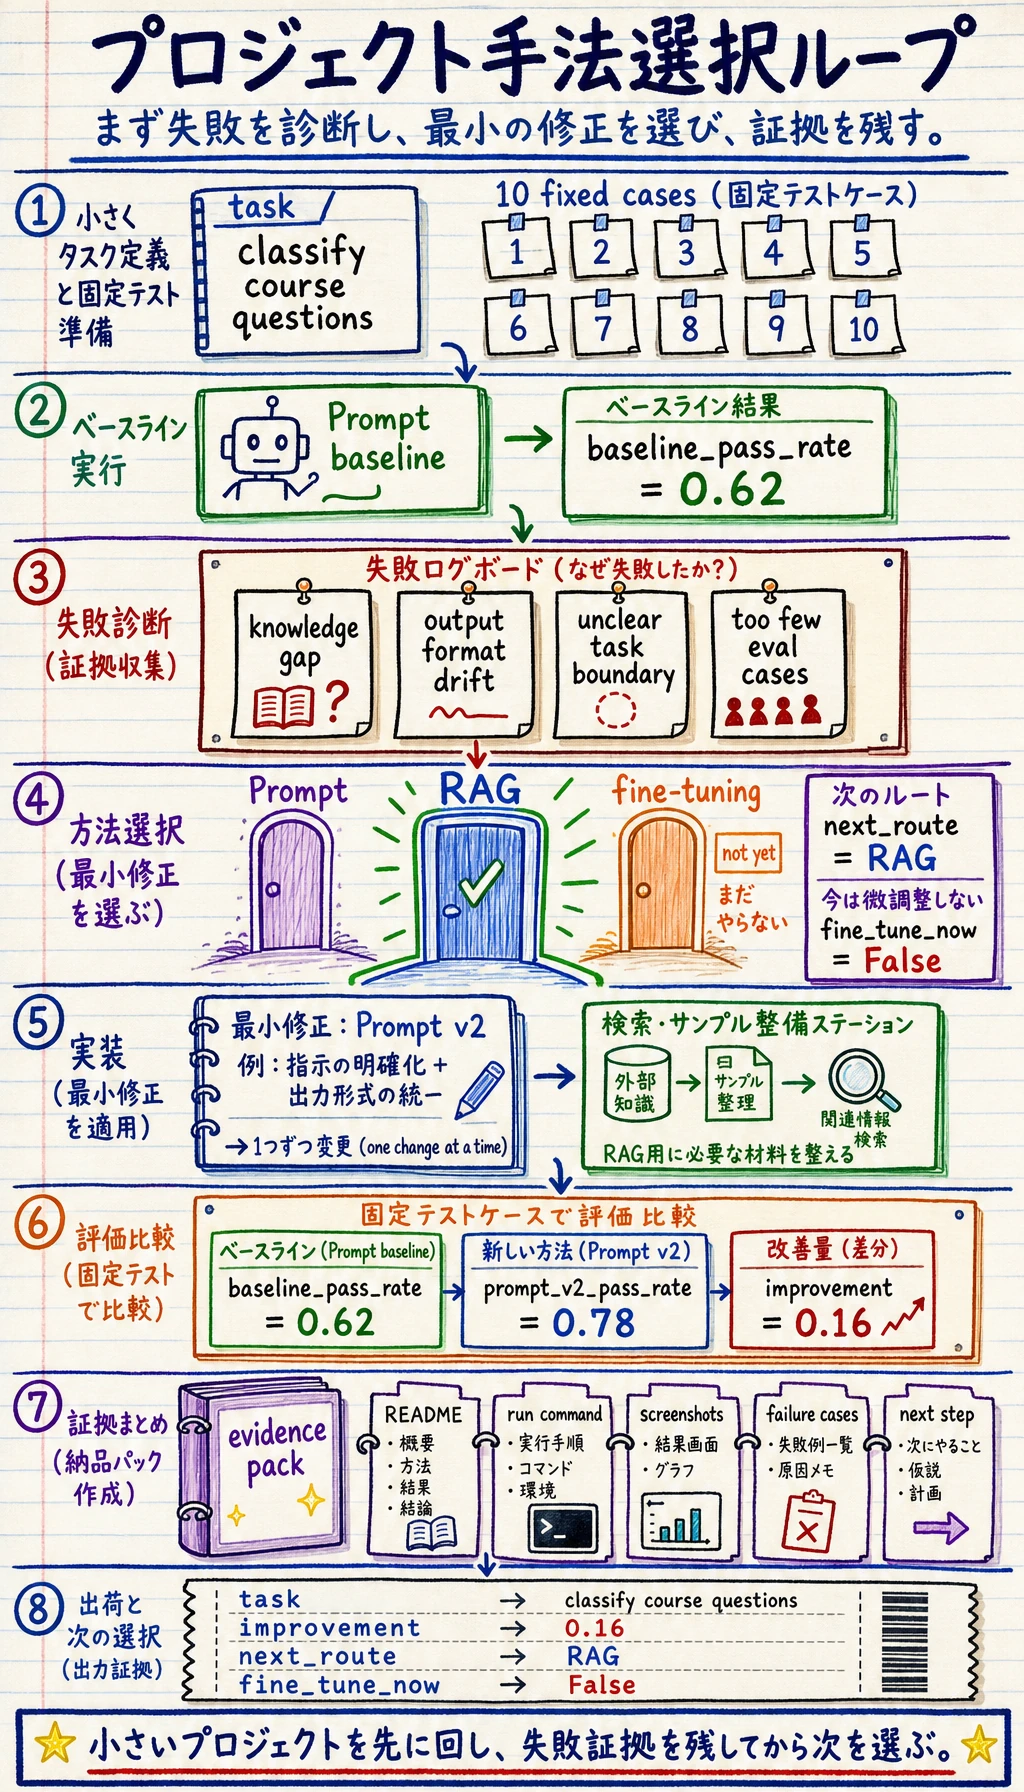 プロジェクト手法選択ループ
まず失敗を診断し、最小の修正を選び、証拠を残す。
1
小さく
タスク定義
と固定テスト
準備
task
classify
course
questions
10 fixed cases (固定テストケース)
1 2 3 4 5
6 7 8 9 10
2
ベースライン
実行
Prompt
baseline
ベースライン結果
baseline_pass_rate
= 0.62
3
失敗診断
(証拠収集)
失敗ログボード (なぜ失敗したか?)
knowledge
gap
?
output
format
drift
unclear
task
boundary
too few
eval
cases
4
方法選択
(最小修正
を選ぶ)
Prompt
RAG
fine-tuning
not yet
まだ
やらない
次のルート
next_route
= RAG
今は微調整しない
fine_tune_now
= False
5
実装
(最小修正
を適用)
最小修正：Prompt v2
例：指示の明確化 +
出力形式の統一
→ 1つずつ変更 (one change at a time)
検索・サンプル整備ステーション
外部
知識
サンプル
整理
関連情報
検索
RAG用に必要な材料を整える
6
評価比較
(固定テスト
で比較)
固定テストケースで評価比較
ベースライン (Prompt baseline)
baseline_pass_rate
= 0.62
新しい方法 (Prompt v2)
prompt_v2_pass_rate
= 0.78
改善量 (差分)
improvement
= 0.16
7
証拠まとめ
(納品パック
作成)
evidence
pack
README
・概要
・方法
・結果
・結論
run command
・実行手順
・コマンド
・環境
>_
screenshots
・結果画面
・グラフ
failure cases
・失敗例一覧
・原因メモ
next step
・次にやること
・仮説
・計画
8
出荷と
次の選択
(出力証拠)
task → classify course questions
improvement → 0.16
next_route → RAG
fine_tune_now → False
小さいプロジェクトを先に回し、失敗証拠を残してから次を選ぶ。